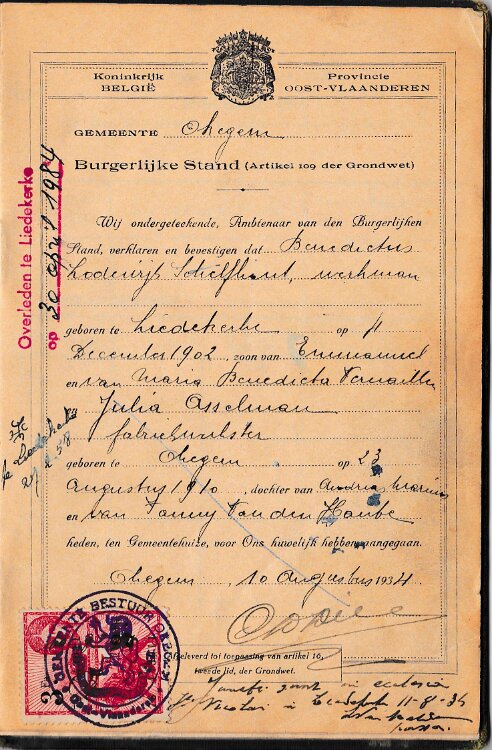 Koninkrijk
BELGIË
Provincie
OOST-VLAANDEREN
GEMEENTE Okegem
Burgerlijke Stand (Artikel 109 der Grondwet)
Wij ondergeteekende, Ambtenaar van den Burgerlijken
Stand, verklaren en bevestigen dat Benedictus
Lodewijk Schelfhout, werkman
geboren te Liedekerke op 11
December 1902, zoon van Emmanuel
en van Maria Benedicta
Julia Asselman
fabriekwerkster
geboren te Okegem op 23
Augustus 1910, dochter van
en van Fanny Van den Hoube
heden, ten Gemeentehuize, voor Ons huwelijk hebben aangegaan.
Okegem, 10 Augustus 1934
Afgeleverd tot toepassing van artikel 16,
tweede lid, der Grondwet.
in ecclesia
Nicolai in 11-8-34
pastor.
Overleden te Liedekerke
op 30 april 1984
te Liedekerke
BESTUUR